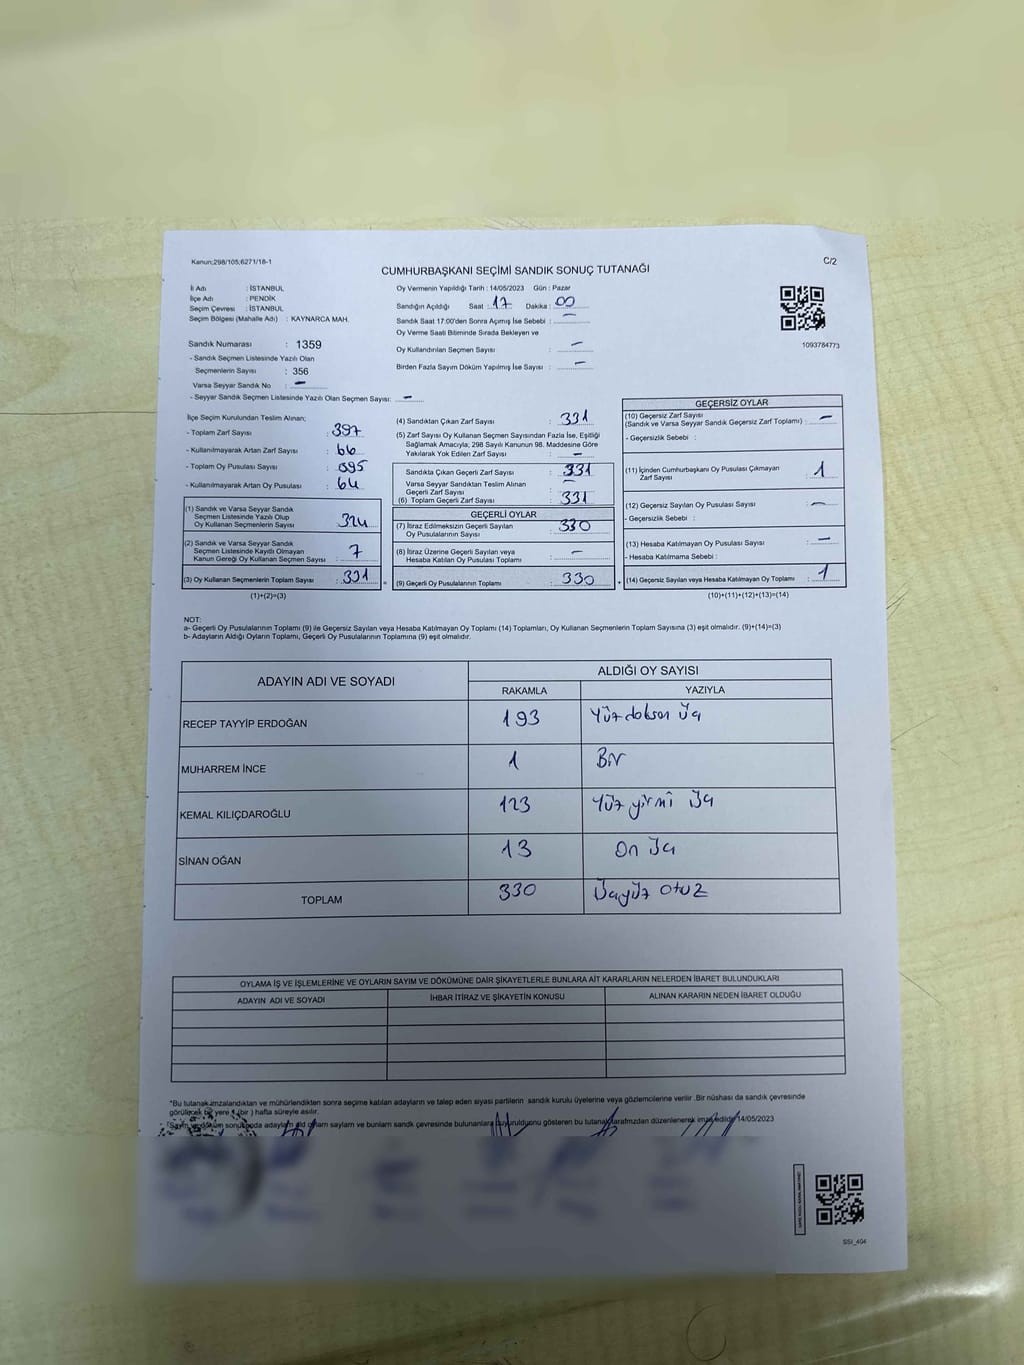 Kanun;298/105;6271/18-1
C/2
CUMHURBAŞKANI SEÇİMİ SANDIK SONUÇ TUTANAĞI
İl Adı : İSTANBUL
İlçe Adı : PENDİK
Seçim Çevresi : İSTANBUL
Seçim Bölgesi (Mahalle Adı) : KAYNARCA MAH.
Sandık Numarası : 1359
- Sandık Seçmen Listesinde Yazılı Olan
Seçmenlerin Sayısı : 356
Varsa Seyyar Sandık No : -
- Seyyar Sandık Seçmen Listesinde Yazılı Olan Seçmen Sayısı: -
Oy Vermenin Yapıldığı Tarih : 14/05/2023 Gün : Pazar
Sandığın Açıldığı Saat : 17 Dakika : 00
Sandık Saat 17:00'den Sonra Açımış İse Sebebi : -
Oy Verme Saati Bitiminde Sırada Bekleyen ve
Oy Kullandırılan Seçmen Sayısı : -
Birden Fazla Sayım Döküm Yapılmış İse Sayısı : -
1093784773
İlçe Seçim Kurulundan Teslim Alınan;
- Toplam Zarf Sayısı : 397
- Kullanılmayarak Artan Zarf Sayısı : 66
- Toplam Oy Pusulası Sayısı : 395
- Kullanılmayarak Artan Oy Pusulası : 64
(1) Sandık ve Varsa Seyyar Sandık
Seçmen Listesinde Yazılı Olup
Oy Kullanan Seçmenlerin Sayısı : 324
(2) Sandık ve Varsa Seyyar Sandık
Seçmen Listesinde Kayıtlı Olmayan
Kanun Gereği Oy Kullanan Seçmen Sayısı : 7
(3) Oy Kullanan Seçmenlerin Toplam Sayısı : 331
(1)+(2)=(3)
(4) Sandıktan Çıkan Zarf Sayısı : 331
(5) Zarf Sayısı Oy Kullanan Seçmen Sayısından Fazla İse, Eşitliği
Sağlamak Amacıyla, 298 Sayılı Kanunun 98. Maddesine Göre
Yakılarak Yok Edilen Zarf Sayısı : -
Sandıkta Çıkan Geçerli Zarf Sayısı : 331
Varsa Seyyar Sandıktan Teslim Alınan
Geçerli Zarf Sayısı : -
(6) Toplam Geçerli Zarf Sayısı : 331
GEÇERLİ OYLAR
(7) İtiraz Edilmeksizin Geçerli Sayılan
Oy Pusulalarının Sayısı : 330
(8) İtiraz Üzerine Geçerli Sayılan veya
Hesaba Katılan Oy Pusulası Toplamı : -
(9) Geçerli Oy Pusulalarının Toplamı : 330
GEÇERSİZ OYLAR
(10) Geçersiz Zarf Sayısı
(Sandık ve Varsa Seyyar Sandık Geçersiz Zarf Toplamı) : -
- Geçersizlik Sebebi :
(11) İçinden Cumhurbaşkanı Oy Pusulası Çıkmayan
Zarf Sayısı : 1
(12) Geçersiz Sayılan Oy Pusulası Sayısı : -
- Geçersizlik Sebebi :
(13) Hesaba Katılmayan Oy Pusulası Sayısı : -
- Hesaba Katılmama Sebebi :
(14) Geçersiz Sayılan veya Hesaba Katılmayan Oy Toplamı : 1
(10)+(11)+(12)+(13)=(14)
NOT:
a- Geçerli Oy Pusulalarının Toplamı (9) ile Geçersiz Sayılan veya Hesaba Katılmayan Oy Toplamı (14) Toplamları, Oy Kullanan Seçmenlerin Toplam Sayısına (3) eşit olmalıdır. (9)+(14)=(3)
b- Adayların Aldığı Oyların Toplamı, Geçerli Oy Pusulalarının Toplamına (9) eşit olmalıdır.
ADAYIN ADI VE SOYADI ALDIĞI OY SAYISI
RAKAMLA YAZIYLA
RECEP TAYYİP ERDOĞAN 193 Yüz doksan üç
MUHARREM İNCE 1 Bir
KEMAL KILIÇDAROĞLU 123 Yüz yirmi üç
SİNAN OĞAN 13 On üç
TOPLAM 330 Üçyüz otuz
OYLAMA İŞ VE İŞLEMLERİNE VE OYLARIN SAYIM VE DÖKÜMÜNE DAİR ŞİKAYETLERLE BUNLARA AİT KARARLARIN NELERDEN İBARET BULUNDUKLARI
ADAYIN ADI VE SOYADI İHBAR İTİRAZ VE ŞİKAYETİN KONUSU ALINAN KARARIN NEDEN İBARET OLDUĞU
*Bu tutanak imzalandıktan ve mühürlendikten sonra seçime katılan adayların ve talep eden siyasi partilerin sandık kurulu üyelerine veya gözlemcilerine verilir .Bir nüshası da sandık çevresinde
görülecek bir yere 1 (bir ) hafta süreyle asılır.
gösteren bu tutanak tarafımızdan düzenlenerek imza edildi. 14/05/2023
SSI_404